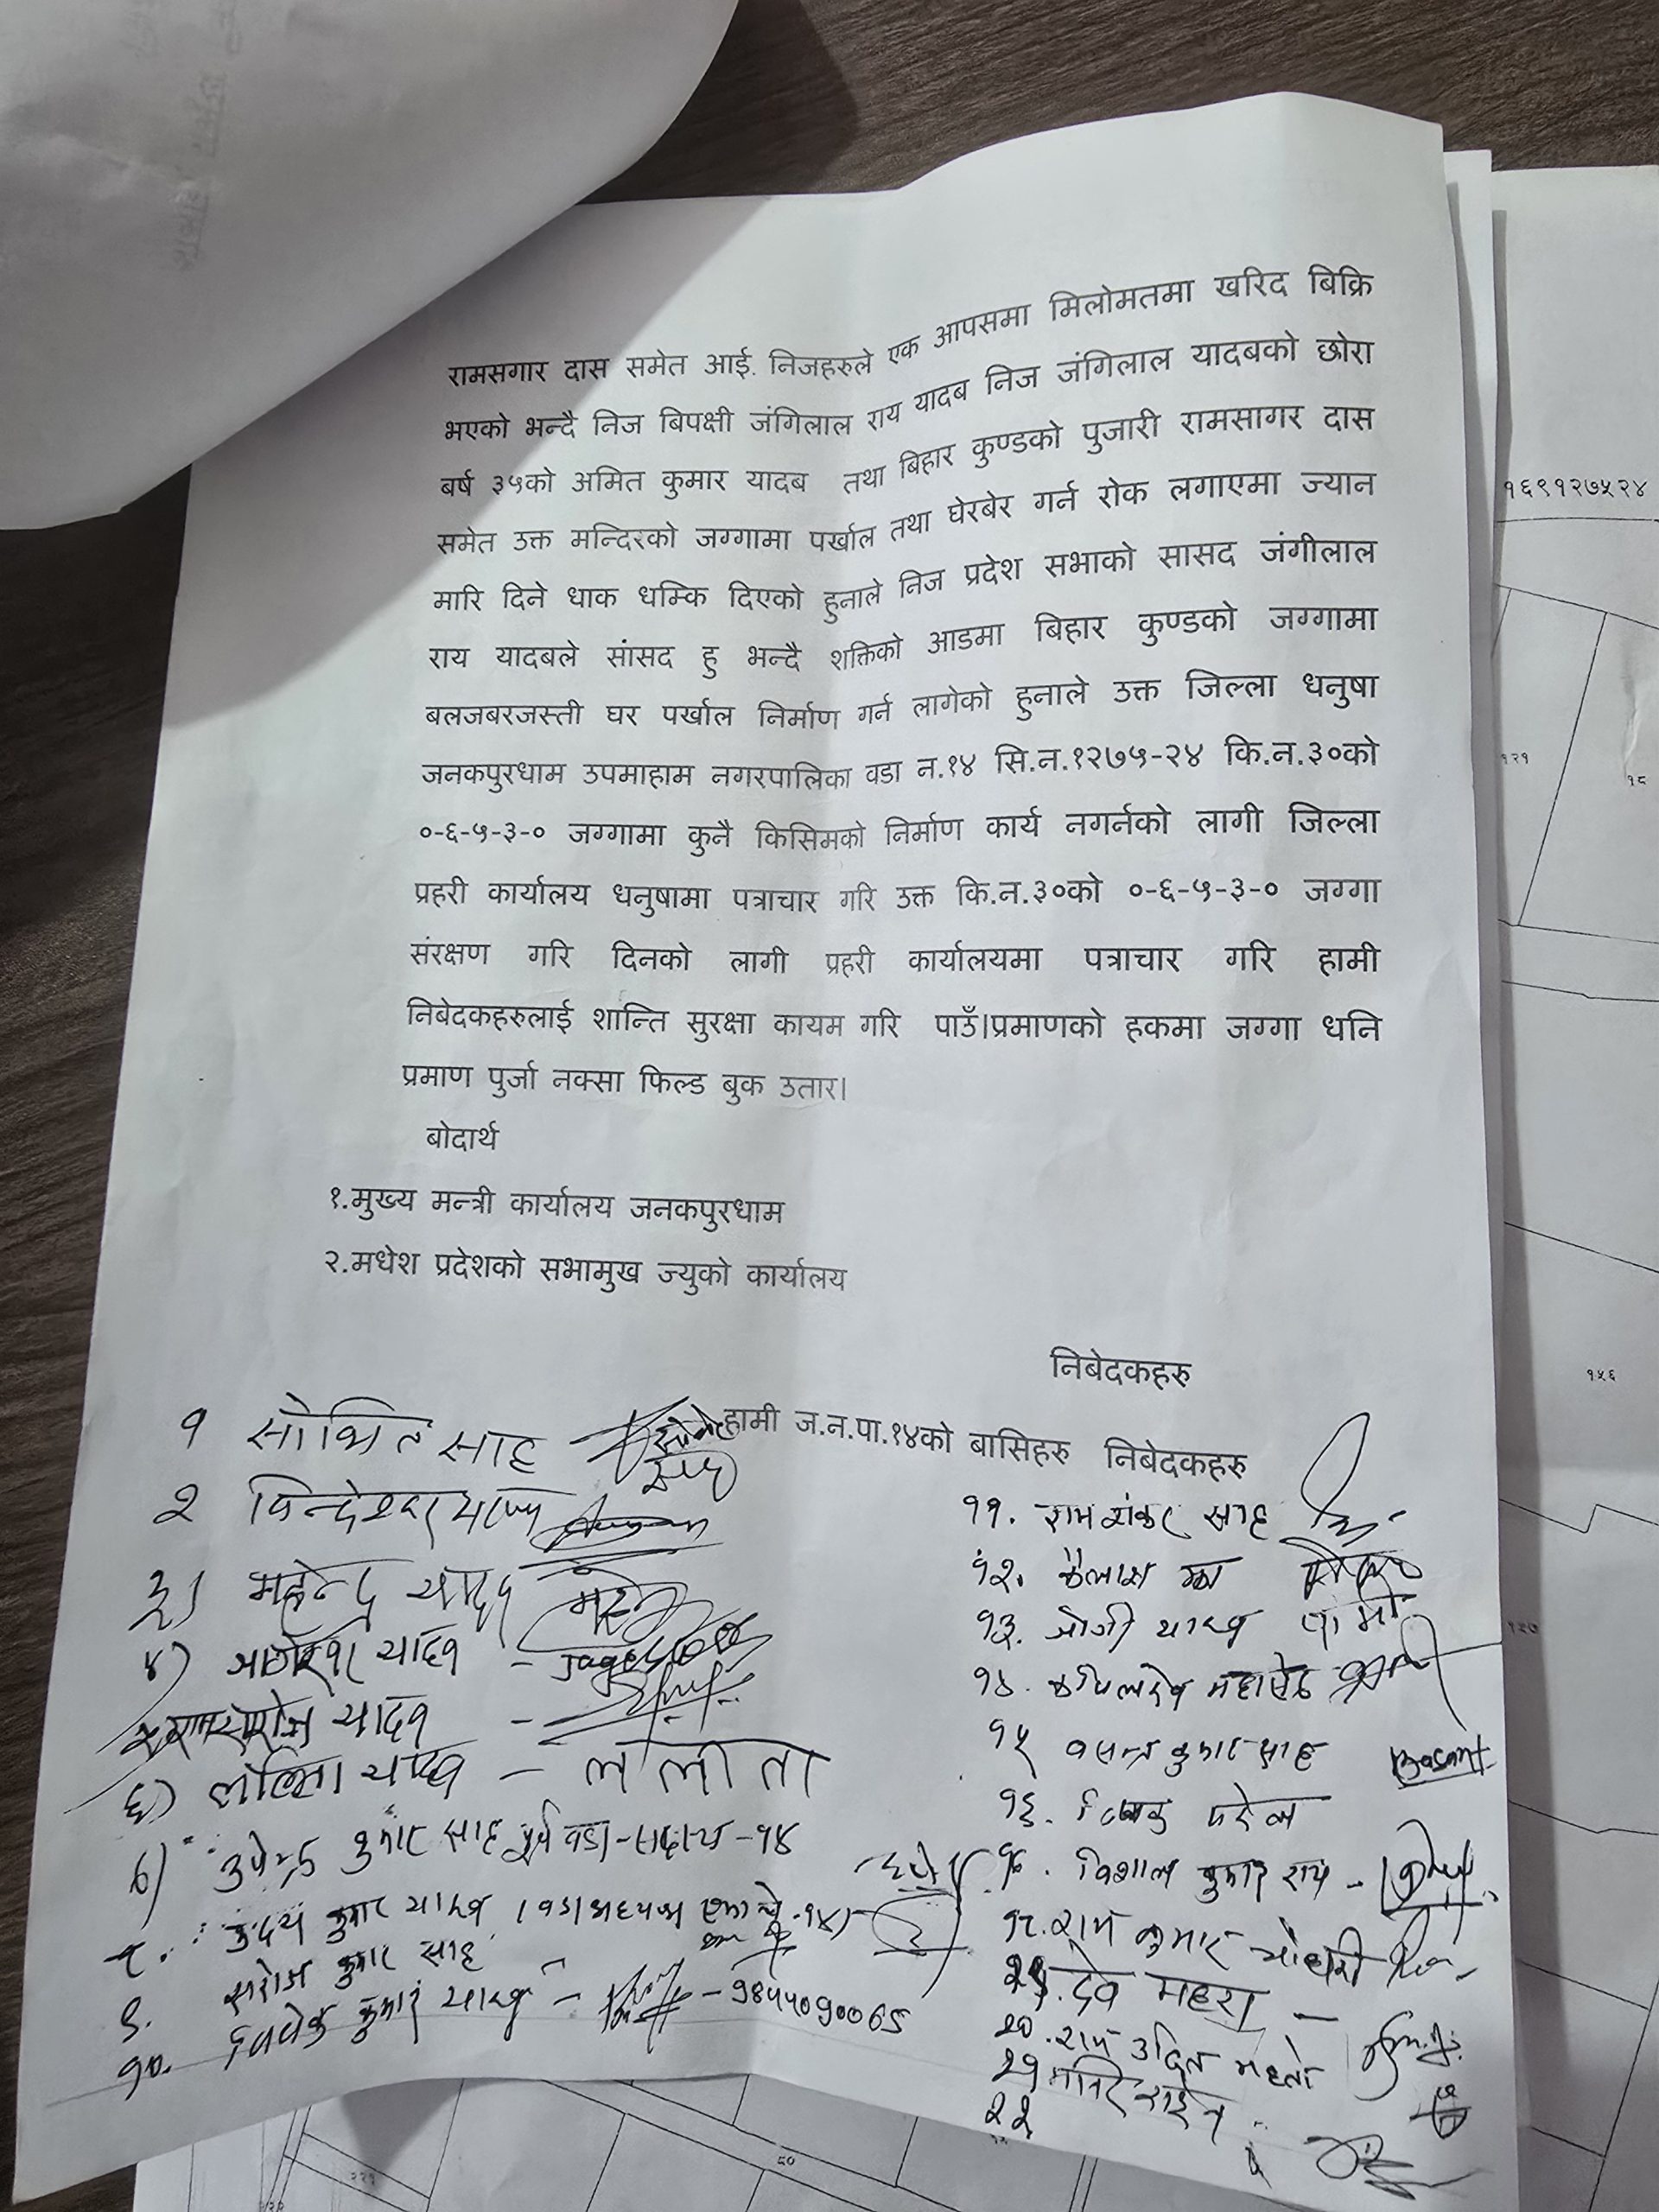 रामसगार दास समेत आई. निजहरुले एक आपसमा मिलोमतमा खरिद बिक्रि
भएको भन्दै निज बिपक्षी जंगिलाल राय यादब निज जंगिलाल यादबको छोरा
बर्ष ३५को अमित कुमार यादब तथा बिहार कुण्डको पुजारी रामसागर दास
समेत उक्त मन्दिरको जग्गामा पर्खाल तथा घेरबेर गर्न रोक लगाएमा ज्यान
मारि दिने धाक धम्कि दिएको हुनाले निज प्रदेश सभाको सासद जंगीलाल
राय यादबले सांसद हु भन्दै शक्तिको आडमा बिहार कुण्डको जग्गामा
बलजबरजस्ती घर पर्खाल निर्माण गर्न लागेको हुनाले उक्त जिल्ला धनुषा
जनकपुरधाम उपमाहाम नगरपालिका वडा न.१४ सि.न.१२७५-२४ कि.न.३०को
०-६-५-३-० जग्गामा कुनै किसिमको निर्माण कार्य नगर्नको लागी जिल्ला
प्रहरी कार्यालय धनुषामा पत्राचार गरि उक्त कि.न.३०को ०-६-५-३-० जग्गा
संरक्षण गरि दिनको लागी प्रहरी कार्यालयमा पत्राचार गरि हामी
निबेदकहरुलाई शान्ति सुरक्षा कायम गरि पाउँ।प्रमाणको हकमा जग्गा धनि
प्रमाण पुर्जा नक्सा फिल्ड बुक उतार।
बोदार्थ
१.मुख्य मन्त्री कार्यालय जनकपुरधाम
२.मधेश प्रदेशको सभामुख ज्युको कार्यालय
निबेदकहरु
हामी ज.न.पा.१४को बासिहरु निबेदकहरु
१ सोभित साह
२
३) महेन्द्र यादव
४) जागेश्वर यादव
यादव
६) ललिता यादव - ललीता
७) उपेन्द्र कुमार साह पूर्व वडा-सदस्य-१४
८. उदय कुमार यादव
९. सरोज कुमार साह
१०. कुमार यादव - 9844090065
११. रामशंकर साह
१२. कैलाश
१३. जोगी यादव
१४. कपिलदेव महासेठ
१५ बसन्त कुमार साह Basant
१६.
१७. विशाल कुमार राय
१८. राम कुमार चौधरी
देव महरा
२०. राम उदित महतो
२१
२२
१६९१२७५२४
१२१
१८
१५६
१२७
२२१
८०